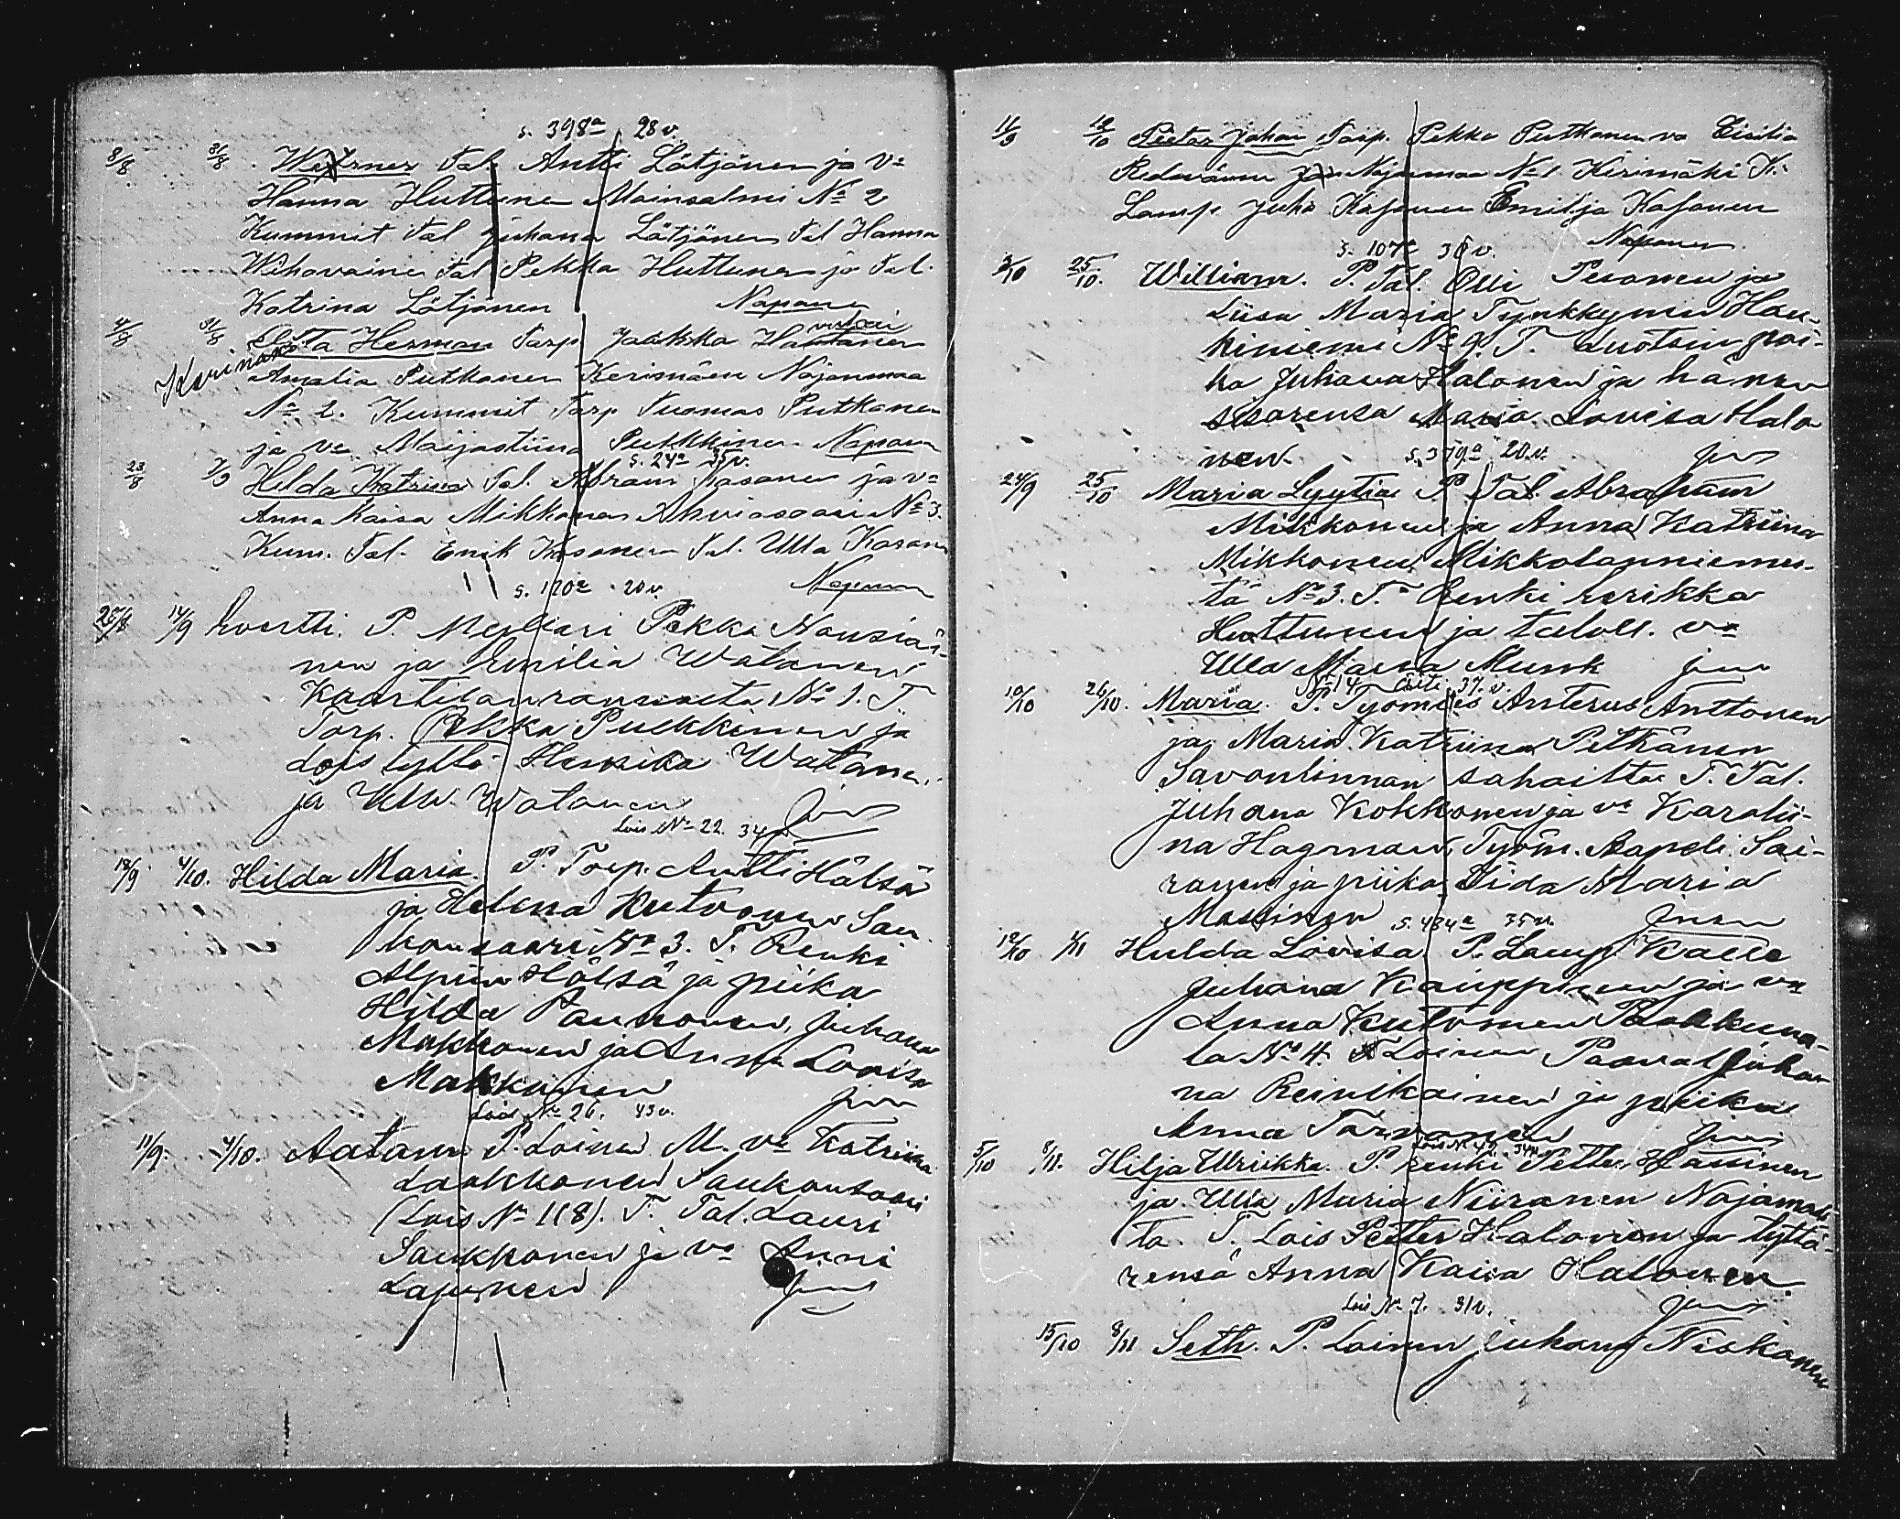 s. 398a 28 v.
8/8 31/8 Werner Tal. Antti Lötjönen ja vo
Hanna Huttunen Moinsalmi No 2
Kummit Tal Juhana Lötjönen Tal Hanna
Wihavainen Tal Pekka Huttunen ja Tal.
Katrina Lötjönen Naparnen
4/8 31/8 Herman Torp Jaakka
Amalia Putkonen Kerimäen Nojanmaa
No 2. Kummit Torp Tuomas Putkonen
ja vo Maijastiina Pulkkinen
s. 24a 35 v.
23/8 2/9 Hilda Katrina Tal. Abram Kosonen ja vo
Anna Kaisa Mikkonen No 3.
Kum. Tal. Erik Kosonen Tal. Ulla Kosonen
s. 120a 20 v.
25/8 14/9 Kvertti. P. Mylläri Pekka Nousiai-
nen ja Emilia Watanen
Kaartilanrannalta No 1. T
Torp. Pekka Pulkkinen ja
Lois tyttö Henrika Watane.
ja Ulla Watanen
Lois No 22. 34 v.
18/9 4/10. Hilda Maria. P. Torp. Antti Hälsä
ja Helena Kutvonen Sau
konsaari No 3. T. Renki
Hälsä ja piika
Hilda Paunonen, Juhana
Makkonen ja Anna Lovisa
Makkonen
Lois No 26. 43 v.
11/9. 4/10. Aatami P. Loinen M. vo Katriina
Laukkonen Saukonsaari
(Lois No 118). T. Tal. Lauri
Saukkonen ja vo Anni
Laponen
11/9 12/10 Pietar Johan Torp. Pekka Putkonen vo
Nojanmaa No 1 Kerimäki K.
Lamp. Juho Kosonen Emilja Kosonen
s. 107a 36 v.
3/10 25/10. William. P. Tal. Olli Pesonen ja
Liisa Maria Tynkkynen Hau-
kiniemi No 9. T. Luotsin poi-
ka Juhana Halonen ja hänen
sisarensa Maria Lovisa Halo
nen
s. 379a 20 v.
24/9 25/10 Maria Lyytia P. Tal. Abraham
Mikkonen ja Anna Katriina
Mikkonen Mikkolanniemes-
tä No 3. T. Renki Kerikka
Huttunen ja taloll. vo
Ulla Maria Munk
No 14 37. v.
10/10 26/10. Maria. P. Työmies Anterus Anttonen
ja Maria Katriina Pelkänen
Savonlinnan sahalta T. Tal.
Juhana Kokkonen ja vo Karolii-
na Hagman, Työm. Aapeli Sai-
ranen ja piika Iida Maria
Massinen
s. 484a 35 v.
12/10 1/11 Hulda Lovisa P. Lamp. Kalle
Juhana Kauppinen ja vo
Anna Kutvonen
la No 4. T Loinen Paaval Juha
na Reinikainen ja piika
Anna
Lois No 42. 34 v.
5/10 8/11. Hilja Ulriikka. P. renki Petter Hassinen
ja Ulla Maria Niiranen Nojamaal
ta T. Lois Petter Halonen ja tyttä-
rensä Anna Kaisa Halonen.
Lois No 7. 31 v.
15/10 8/11 Seth. P. Loinen Juhana Niskanen